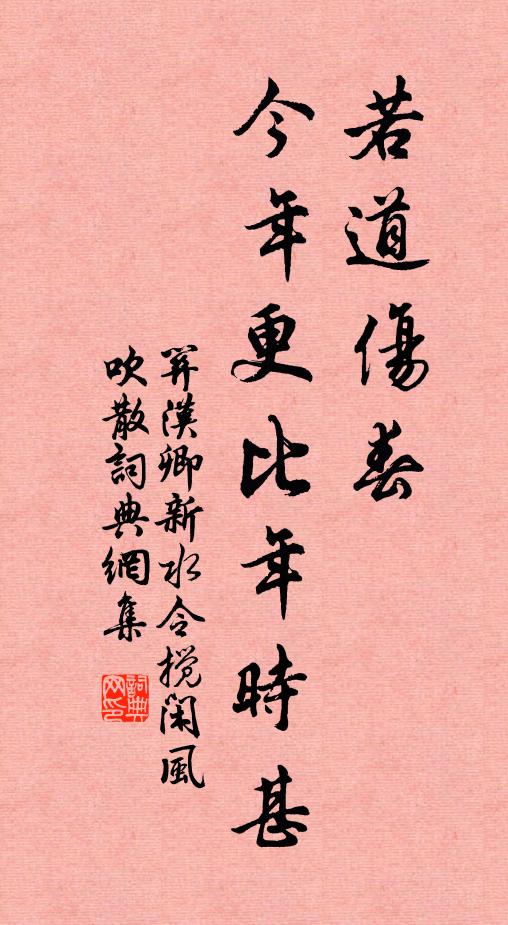 若道傷春
今年更比年時甚
关漢卿新水令搅閑風
吹散詞典網集
詞典网印